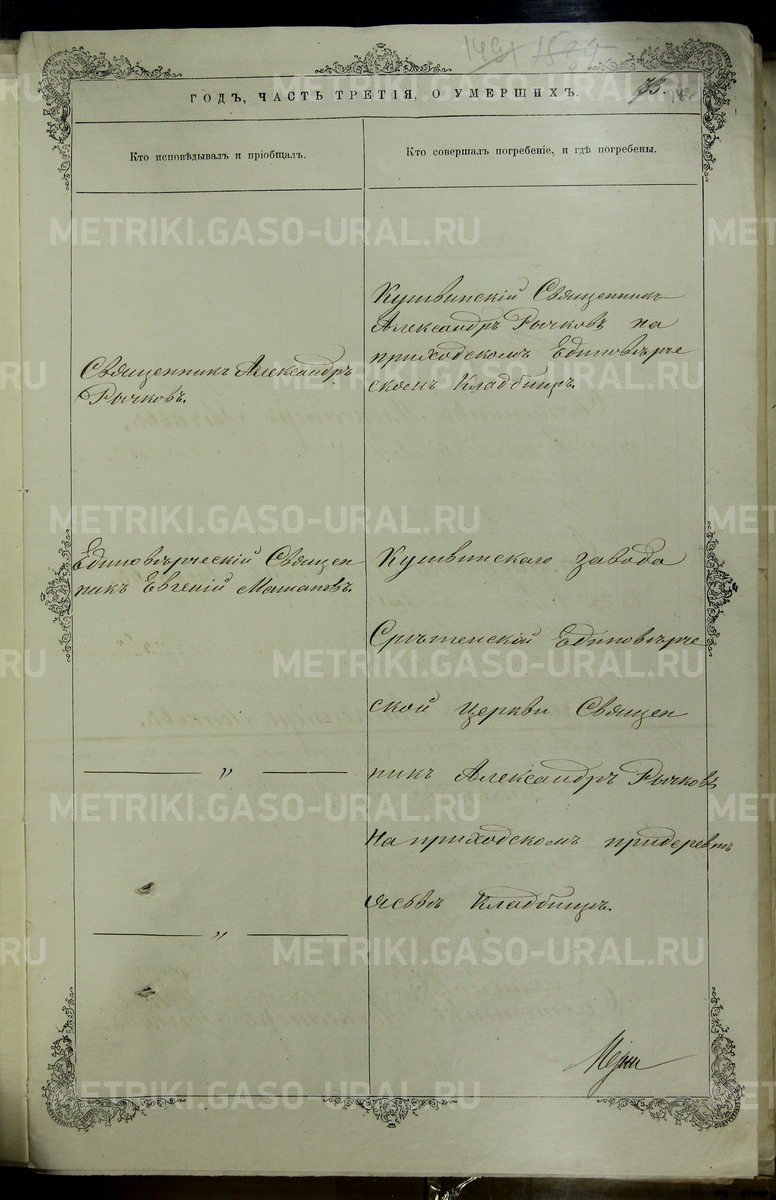 1491 1589
ГОДЪ, ЧАСТЬ ТРЕТІЯ, О УМЕРШИХЪ.
75.
Кто исповѣдывалъ и пріобщалъ.
Кто совершалъ погребеніе, и гдѣ погребены.
Священникъ Александръ
Рычковъ.
Кушвинскій Священникъ
Александръ Рычковъ на
приходскомъ Единовѣрче
скомъ Кладбищѣ.
Единовѣрческій Священ
никъ Евгеній
〃
〃
Кушвинскаго завода
Срѣтенской Единовѣрче
ской церкви Священ
никъ Александръ Рычковъ
на приходскомъ придеревнѣ
Кладбищѣ.
METRIKI.GASO-URAL.RU